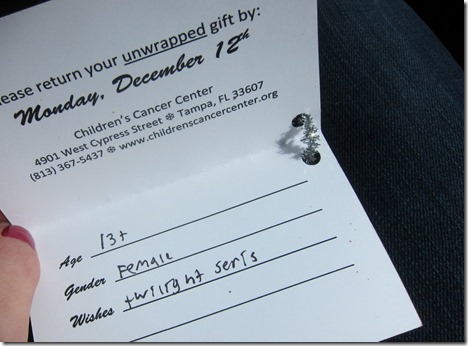 ease return your unwrapped gift by:
Monday, December 12th
Children's Cancer Center
4901 West Cypress Street ❄ Tampa, FL 33607
(813) 367-5437 ❄ www.childrenscancercenter.org
Age 13+
Gender Female
Wishes twilight seris